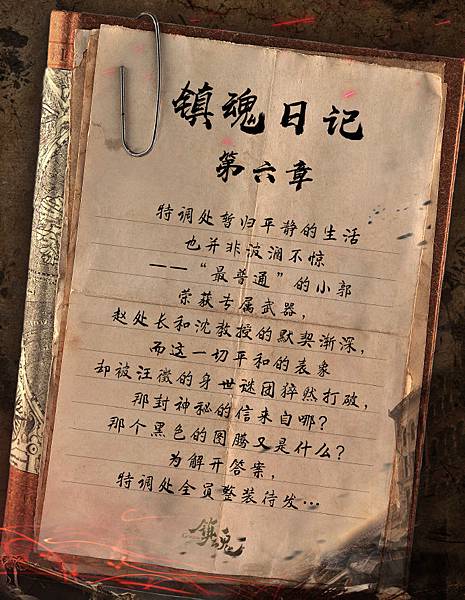 镇魂日记
第六章
特调处暂归平静的生活
也并非波澜不惊
——“最普通”的小郭
荣获专属武器，
赵处长和沈教授的默契渐深，
而这一切平和的表象
却被汪徵的身世谜团猝然打破，
那封神秘的信来自哪？
那个黑色的图腾又是什么？
为解开答案，
特调处全员整装待发…
镇魂